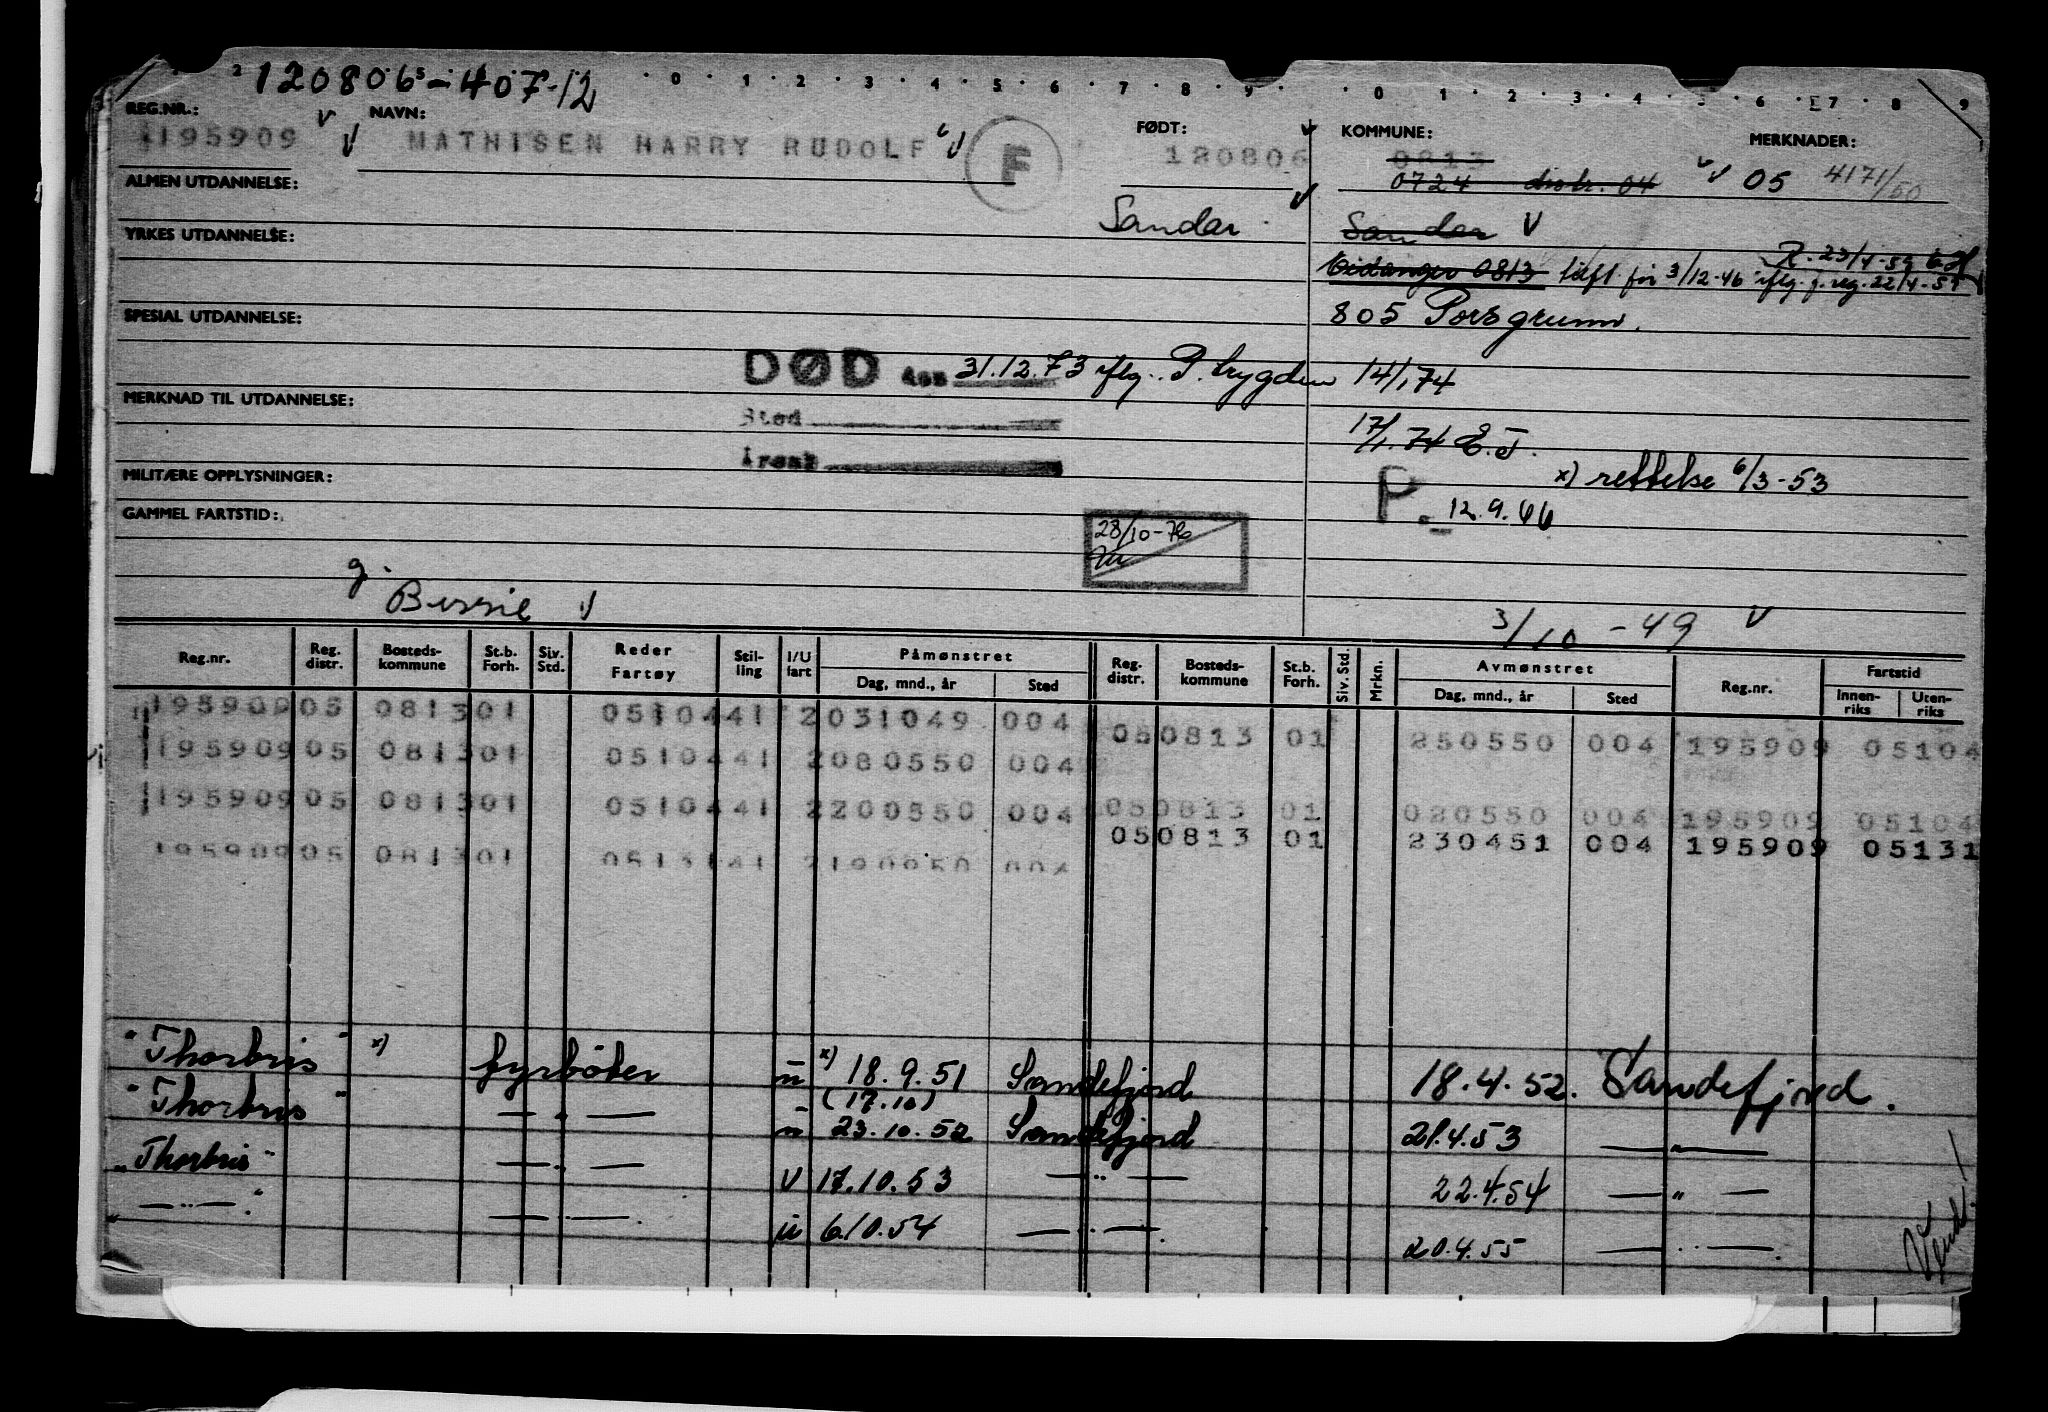 120806-407-12
REG.NR.: NAVN: FØDT: KOMMUNE: MERKNADER:
195909 MATHISEN HARRY RUDOLF F 120806 0813
0724 distr. 04 05 4171/50
ALMEN UTDANNELSE:
Sandar Sandar
YRKES UTDANNELSE:
R. 23/4-59
Eidanger 0813 tilf. før 3/12-46 iflg. f. reg. 22/4-59
SPESIAL UTDANNELSE: 805 Porsgrunn.
DØD den 31.12.73 iflg. P. trygden 14/1 74
MERKNAD TIL UTDANNELSE: Sted
17/1.74 E.J.
Årsak
MILITÆRE OPPLYSNINGER: x) rettelse 6/3-53
P. 12.9.66
GAMMEL FARTSTID:
28/10-76
g. Bessie
3/10-49
Reg.nr. Reg. distr. Bosteds- kommune St.b. Forh. Siv. Std. Reder Fartøy Stil- ling I/U fart Påmønstret Dag, mnd., år Sted Reg. distr. Bosteds- kommune St.b. Forh. Siv. Std. Mrkn. Avmønstret Dag, mnd., år Sted Reg.nr. Fartstid Innen- riks Uten- riks
195909 05 0813 01 0510441 2 031049 004 05 0813 01 250550 004 195909 05104
195909 05 0813 01 0510441 2 080550 004
195909 05 0813 01 0510441 2 200550 004 05 0813 01 020550 004 195909 05104
05 0813 01 230451 004 195909 05131
195909 05 0813 01 0513141 2 190950 004
"Thorbris" x) fyrbøter u x) 18.9.51 Sandefjord 18.4.52. Sandefjord.
(17.10)
"Thorbris" — " — u 23.10.52 Sandefjord 21.4.53 — " —
"Thorbris" — " — U 17.10.53 — " — 22.4.54 — " —
" — " — " — " — u 6.10.54 — " — 20.4.55 — " —
Vend!